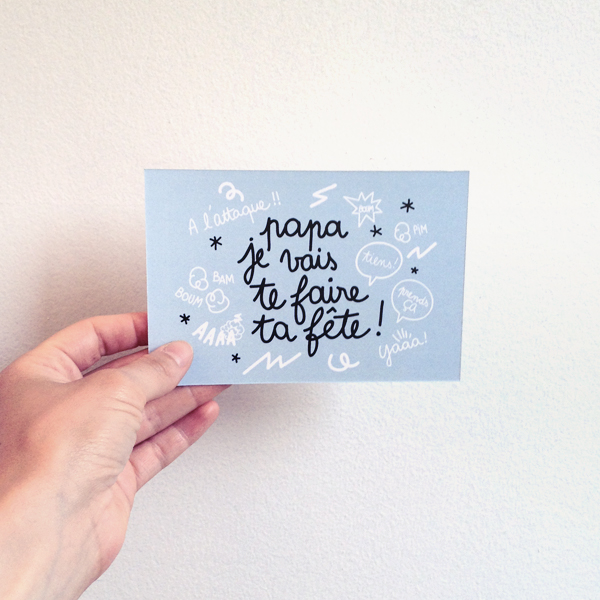 A l'attaque !!
papa
je vais
te faire
ta fête !
PIM
tiens !
prends
ça
BAM
BOUM
AAAA
yaaa !